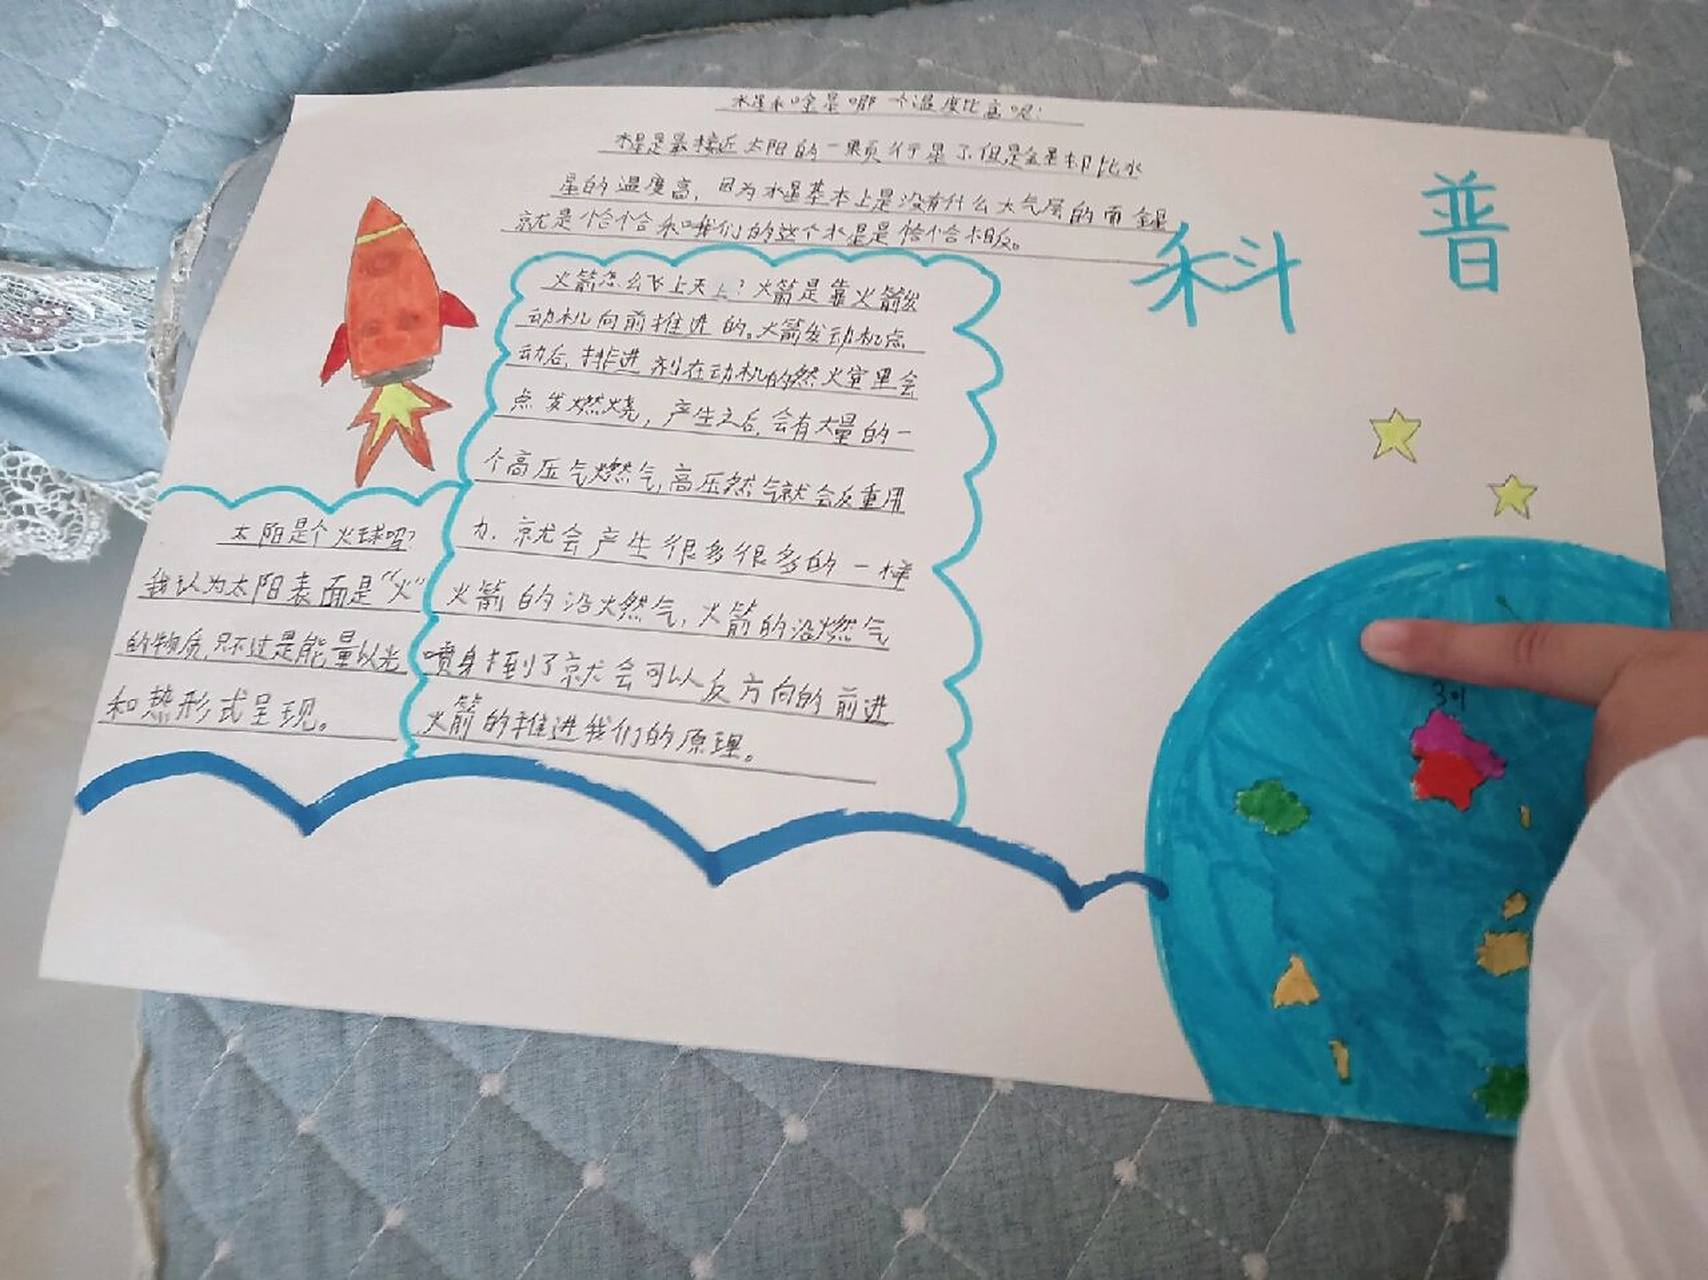 水星和金星哪一个温度比高呢:
水星是最接近太阳的一颗行星了.但是金星却比水
星的温度高，因为水星基本上是没有什么大气层的而金星
就是恰恰和我们的这个水星是恰恰相反。
科普
火箭怎么飞上天上?火箭是靠火箭发
动机向前推进的。火箭发动机点
动后,排进剂在动机的然火室里会
点发燃烧，产生之后,会有大量的一
个高压气燃气,高压然气就会反重用
力、就会产生很多很多的一样
火箭的沿火燃气,火箭的沿燃气
喷身扌到了就会可以反方向的前进
火箭的推进我们的原理。
太阳是个火球吗?
我认为太阳表面是“火”
的物质,只不过是能量以光
和热形式呈现。